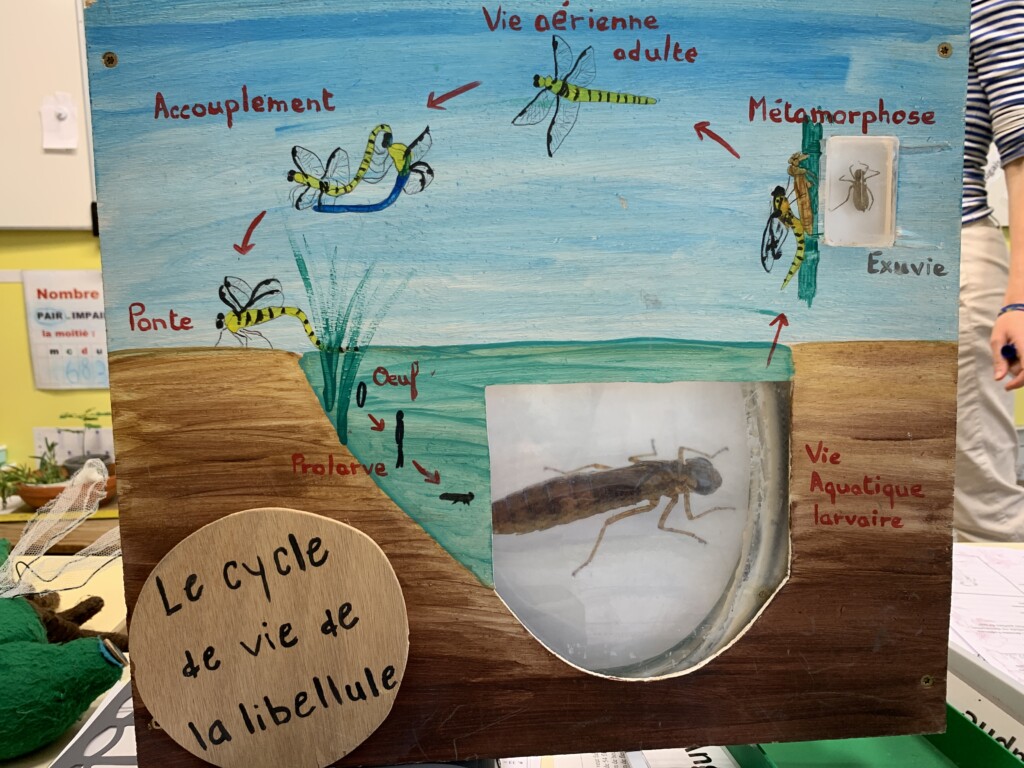 Vie aérienne
adulte
Accouplement
Métamorphose
Exuvie
Ponte
Oeuf
Prolarve
Vie
Aquatique
larvaire
Le cycle
de vie de
la libellule
Nombre
PAIR IMPAI
la moitié :
m c d u